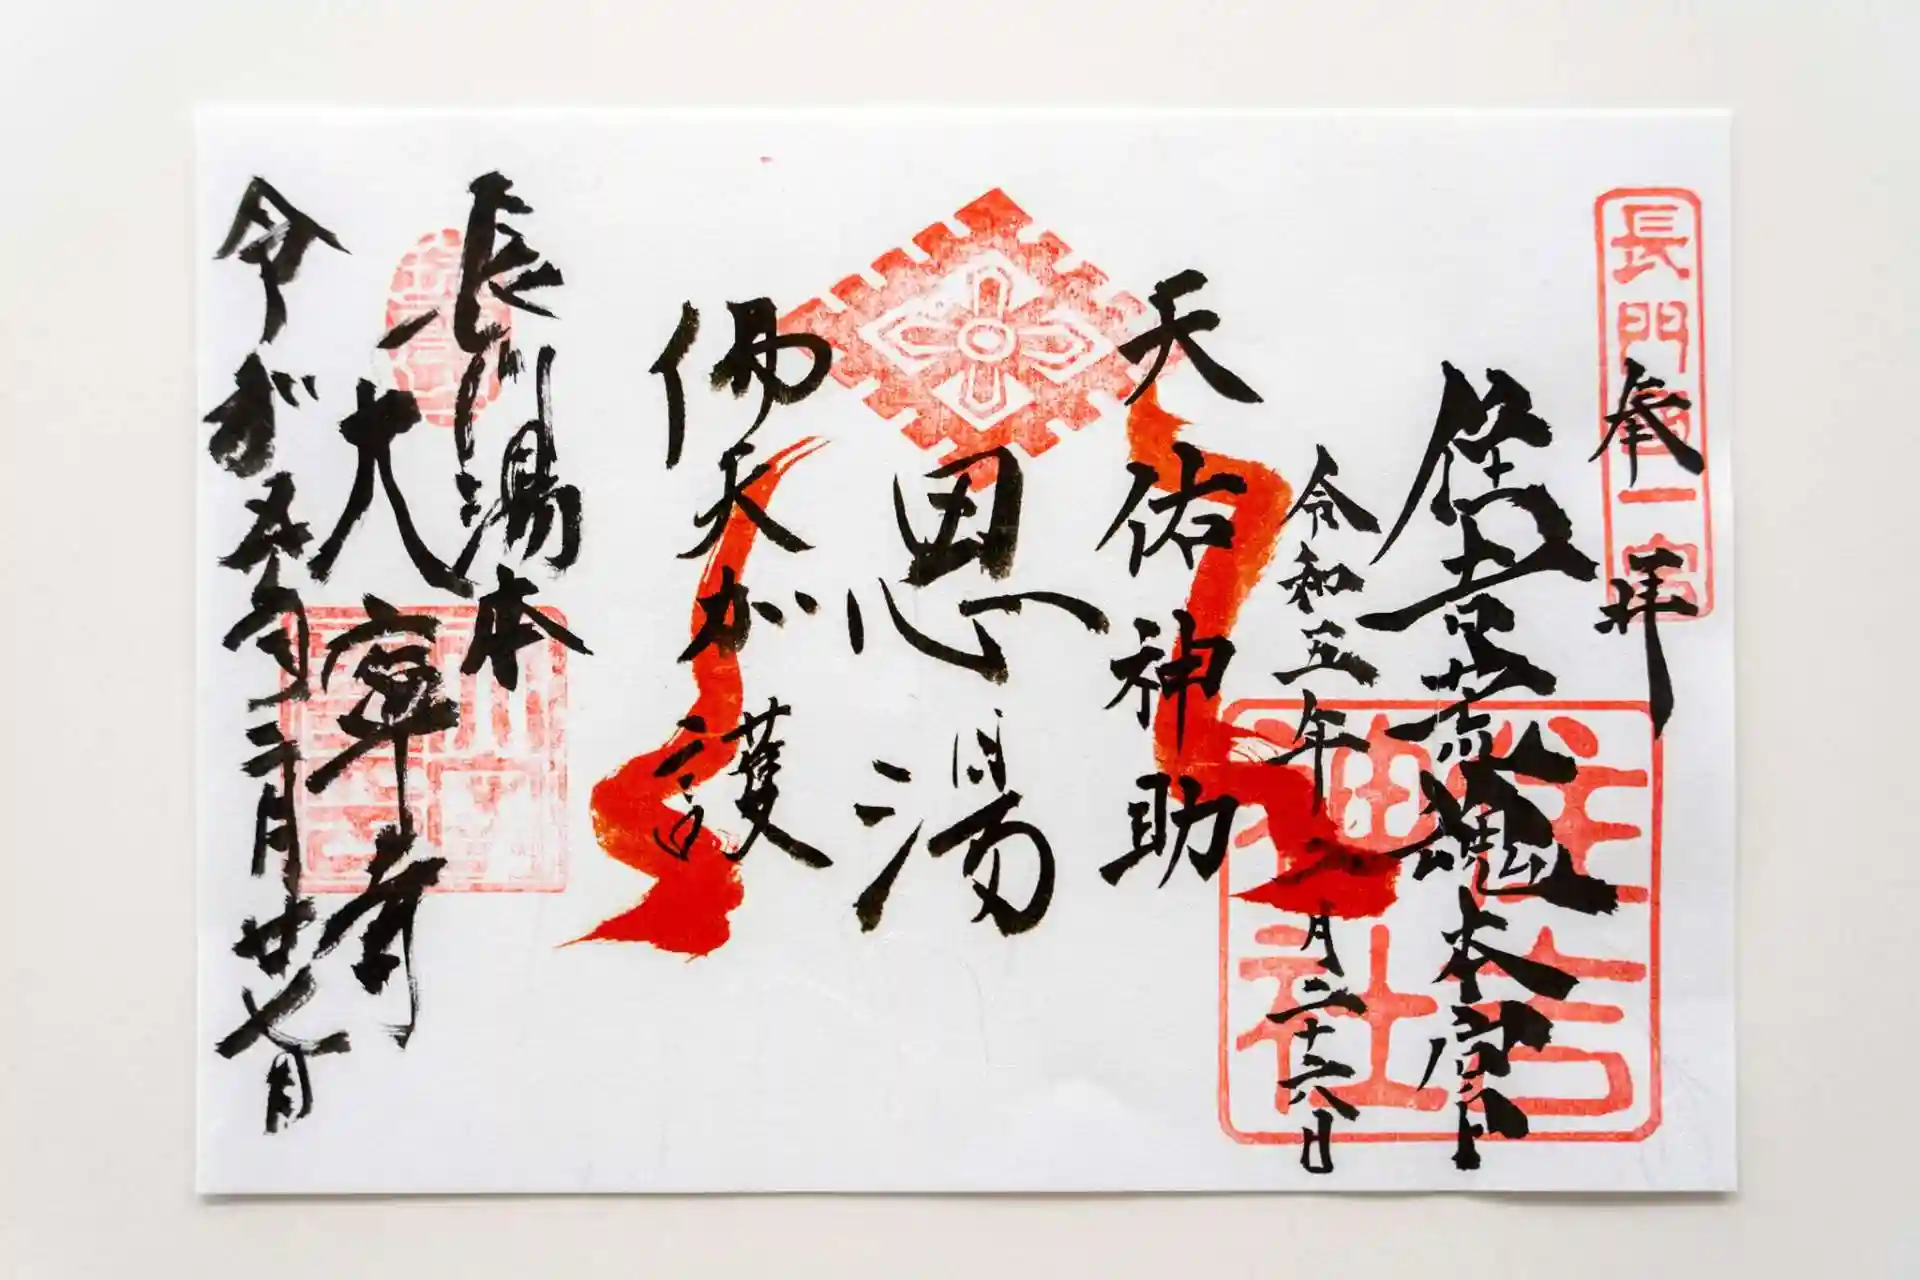 長門國一宮
奉拝
住吉荒魂本宮
住吉神社
令和五年二月二十六日
天佑神助
恩湯
佛天加護
長門湯本
大寧寺
令和五年二月廿七日